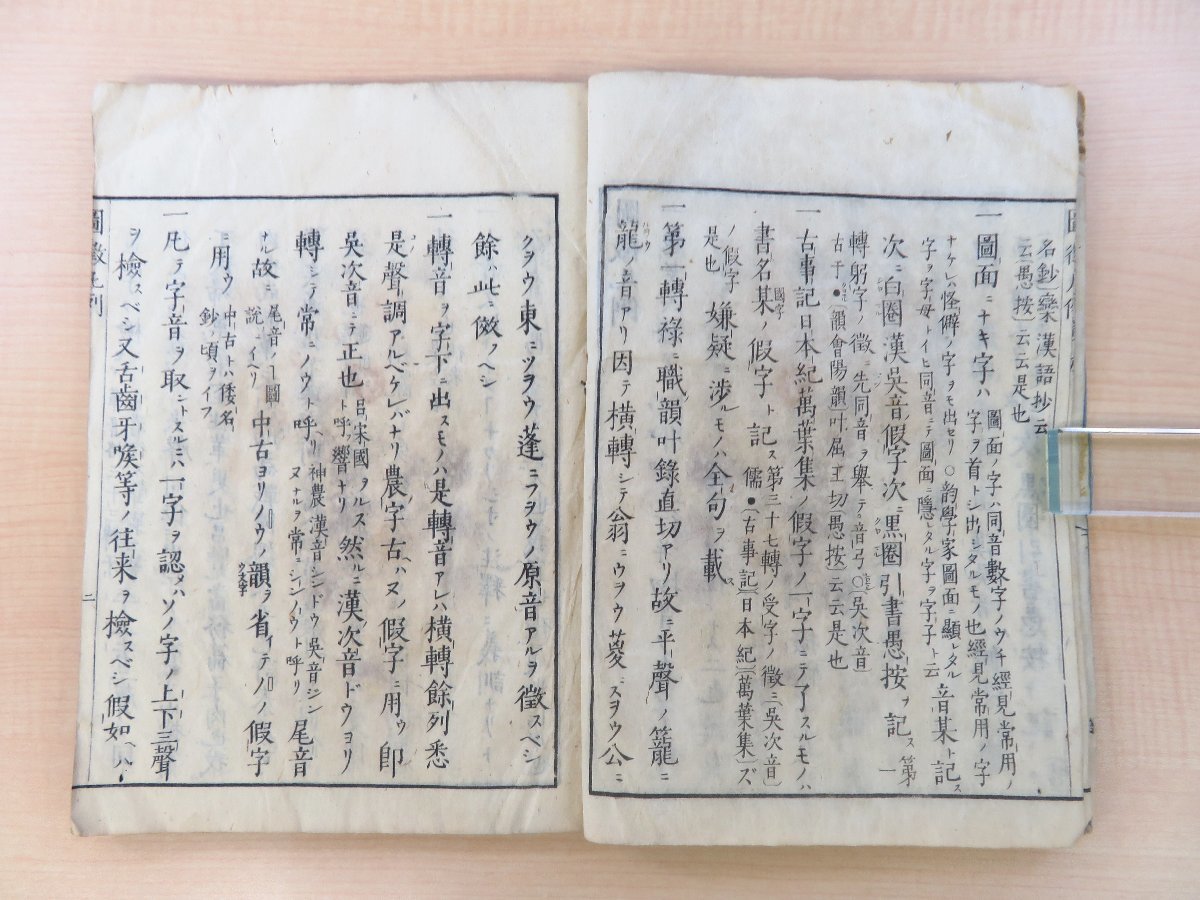 名鈔｢藥｣漢語抄云
云愚按｣云云是也
一圖面ニナキ字ハ圖面ノ字ハ同音數字ノウチ經見常用ノ
字ヲ首トシ出シタルモノ也經見常用ノ字
ナケレハ怪僻ノ字ヲモ出セリ○韵學家圖面ニ顯レタル
字ヲ字母トイヒ同音ニテ圖面ニ隱レタル字ヲ字子ト云音某ト記ス
次ニ白圈漢吳音假字次ニ黑圈引書愚按ヲ記ス第一
轉躬字ノ徵ニ先同音ヲ舉テ音弓○吳次音
古于●韻會陽韻叶居王切愚按云云是也
一古事記日本紀萬葉集ノ假字ノ一字ニテ了スルモノハ
書名某ノ假字ト記ス第三十七轉ノ受字ノ徵ニ吳次音
儒●古事記日本紀萬葉集ズ
ノ假字
是也嫌疑ニ涉ルモノハ全句ヲ載ス
一第一轉祿ニ職韻叶錄直切アリ故ニ平聲ノ籠ニ
龍ノ音アリ因テ橫轉シテ翁ニウヲウ菶ニスヲウ公ニ
クヲウ東ニツヲウ蓬ニフヲウノ原音アルヲ徵スベシ
餘ハ此ニ傚フヘシ
一轉音ヲ字下ニ出スモノハ是轉音アレハ橫轉餘列悉
是聲調アルベケレバナリ農字古ハヌノ假字ニ用ウ卽
吳次音ニテ正也呂宋國ヲルスト呼フ響ナリ然ルニ漢次音ドウヨリ
轉シテ常ニノウト呼ヘリ神農漢音シンドウ吳音ジン
ヌナルヲ常ニシンノウト呼リ尾音
ナル故ニ尾音ノ丁圖
說ニイヘリ中古ヨリノウノ韻ヲ省イテノノ假字
ニ用ウ中古トハ倭名
鈔ノ頃ヲイフ
一凡テ字音ヲ取ントスルニハ一字ヲ認メハソノ字ノ上下三聲
ヲ檢スベシ又舌齒牙喉等ノ往來ヲ檢スベシ假如ハ